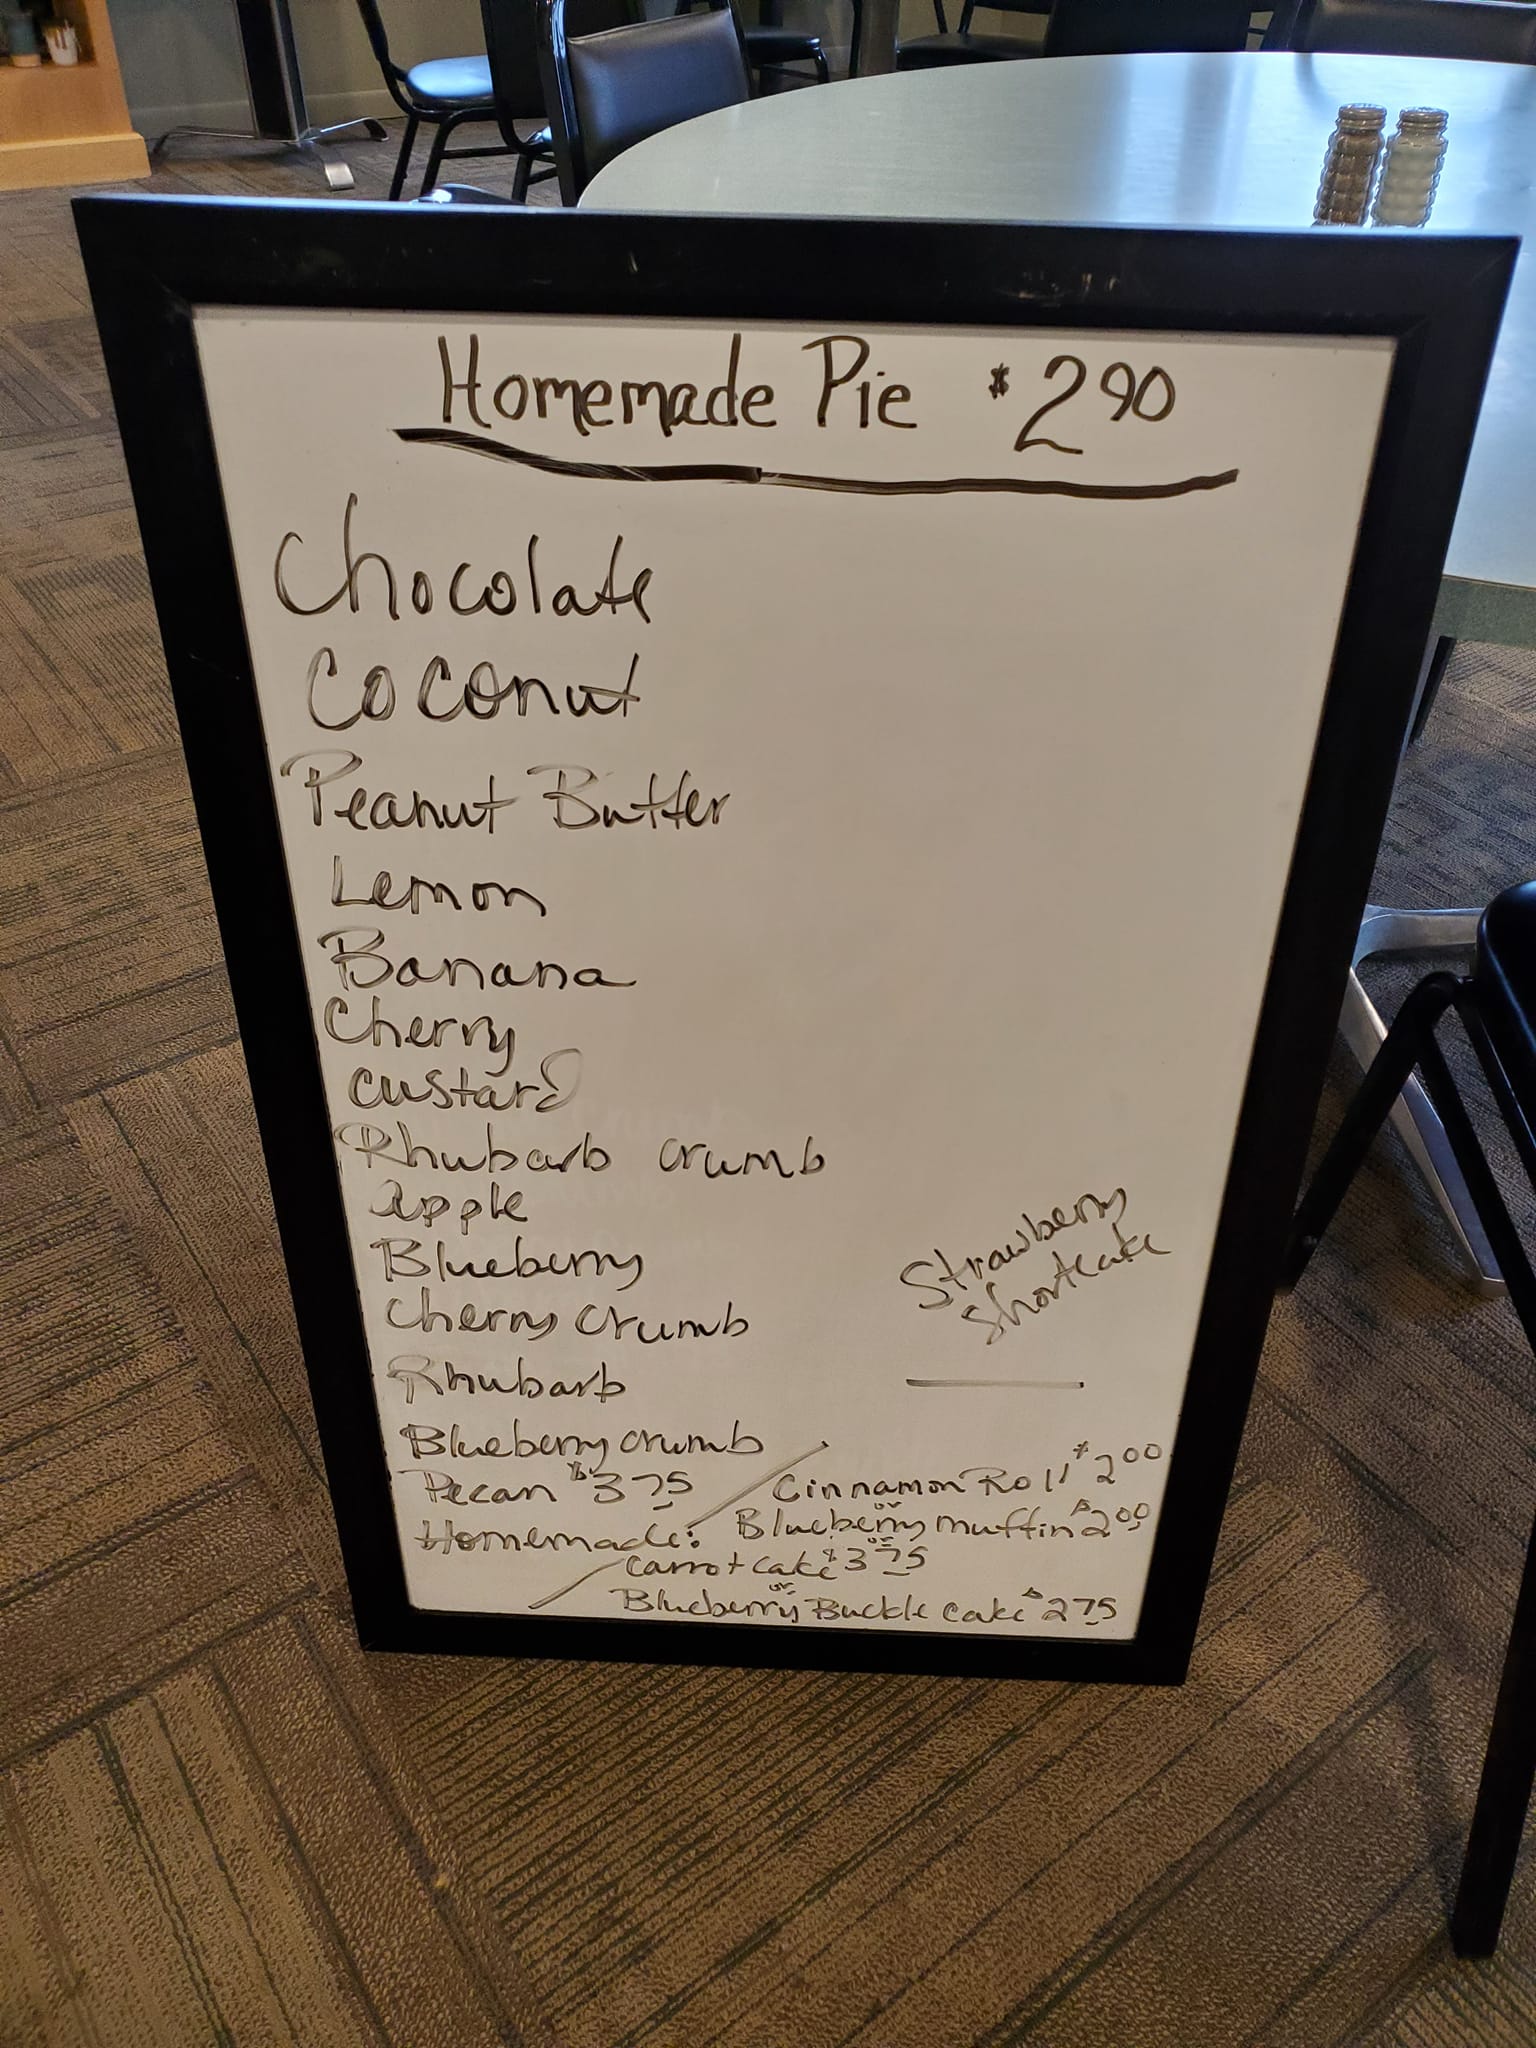 Homemade Pie $2.90
Chocolate
Coconut
Peanut Butter
Lemon
Banana
Cherry
custard
Rhubarb crumb
apple
Blueberry
Cherry crumb
Rhubarb
Blueberry crumb
Pecan $3.75
Strawberry
Shortcake
Homemade:
Cinnamon Roll $2.00
or
Blueberry muffin $2.00
or
carrot cake $3.75
or
Blueberry Buckle cake $2.75